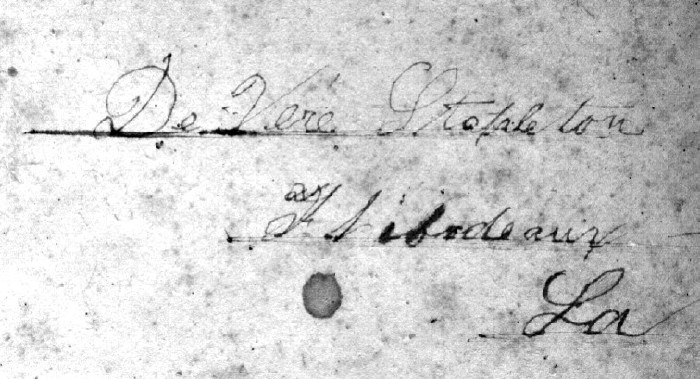 De Vere Stapleton
Thibodeaux
La